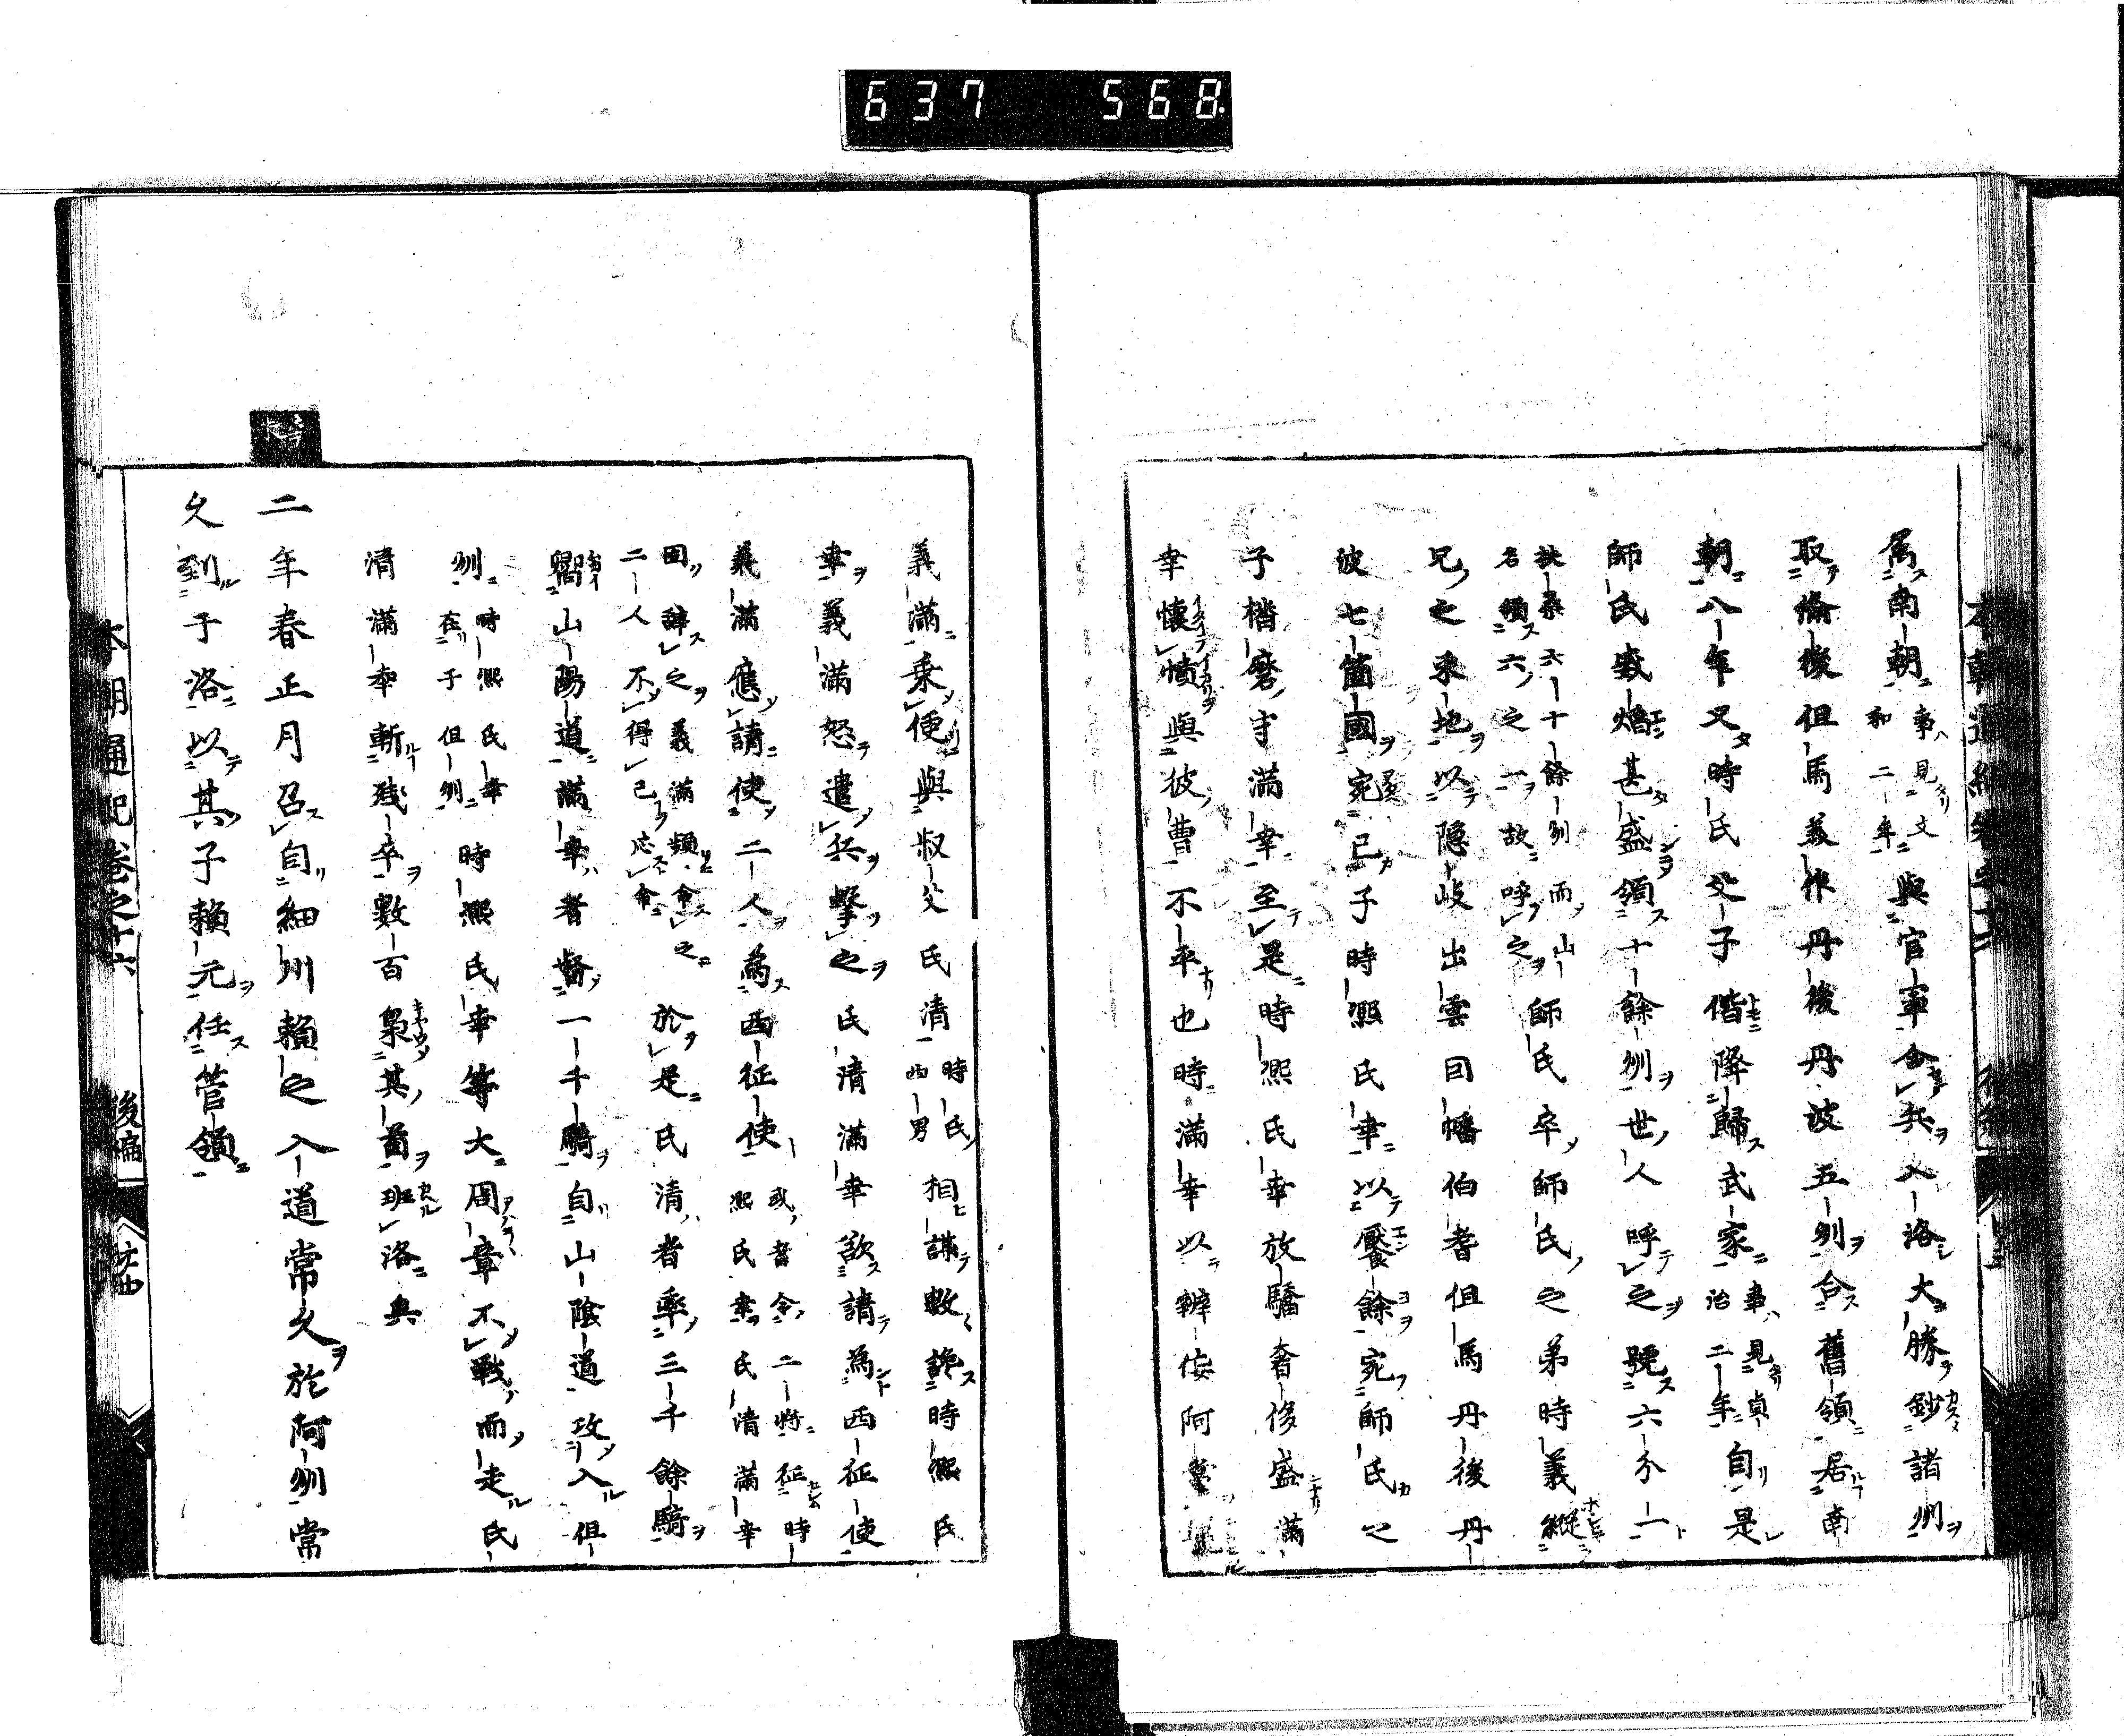 637 568
属南朝事見文和二年與官軍合兵入洛大勝鈔諸州
取備後但馬美作丹後丹波五州合舊領居南
朝八年又時氏父子偕降歸武家事見貞治二年自是
師氏威熖甚盛領十餘州世人呼之號六分一
扶桑六十餘州而山名領六之一故呼之師氏卒師氏之弟時義縱
兄之釆地以隠岐出雲因幡伯耆但馬丹後丹
波七箇國宛己子時熙氏幸以饜餘宛師氏之
子楷磨守滿幸至是時熙氏幸放驕奢侈盛滿
幸懷憤與彼曹不平也時滿幸以辯侫阿黨
義滿乘便與叔父氏清時氏四男相謀數讒時熙氏
幸義滿怒遣兵擊之氏清滿幸欲請為西征使
義滿應請使二人為西征使或者令二將征時熙氏幸氏清滿幸
固辭之義滿頻命之二人不得已応命於是氏清者率三千餘騎
嚮山陽道滿幸者督一千騎自山陰道攻入但
州時熙氏幸在于但州時熙氏幸等大周章不戰而走氏
清滿幸斬殘卒數百梟其首班洛與
二年春正月召自細川賴之入道常久於阿州常
久到于洛以其子賴元任管領
本朝通記卷之十六 後編